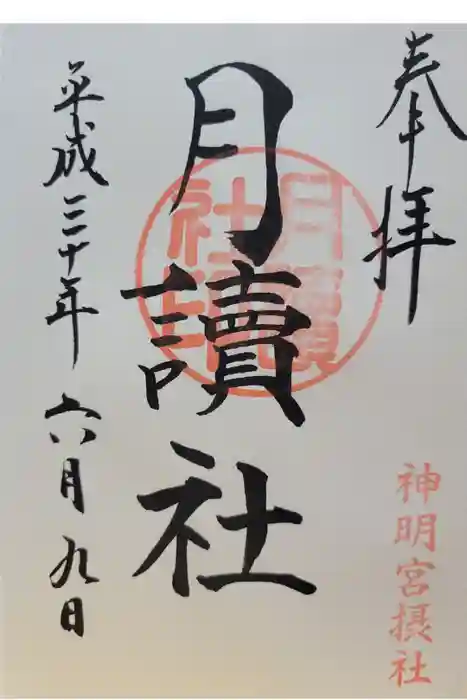 奉拝
神明宮摂社
月讀社
月讀社印
平成三十年六月九日